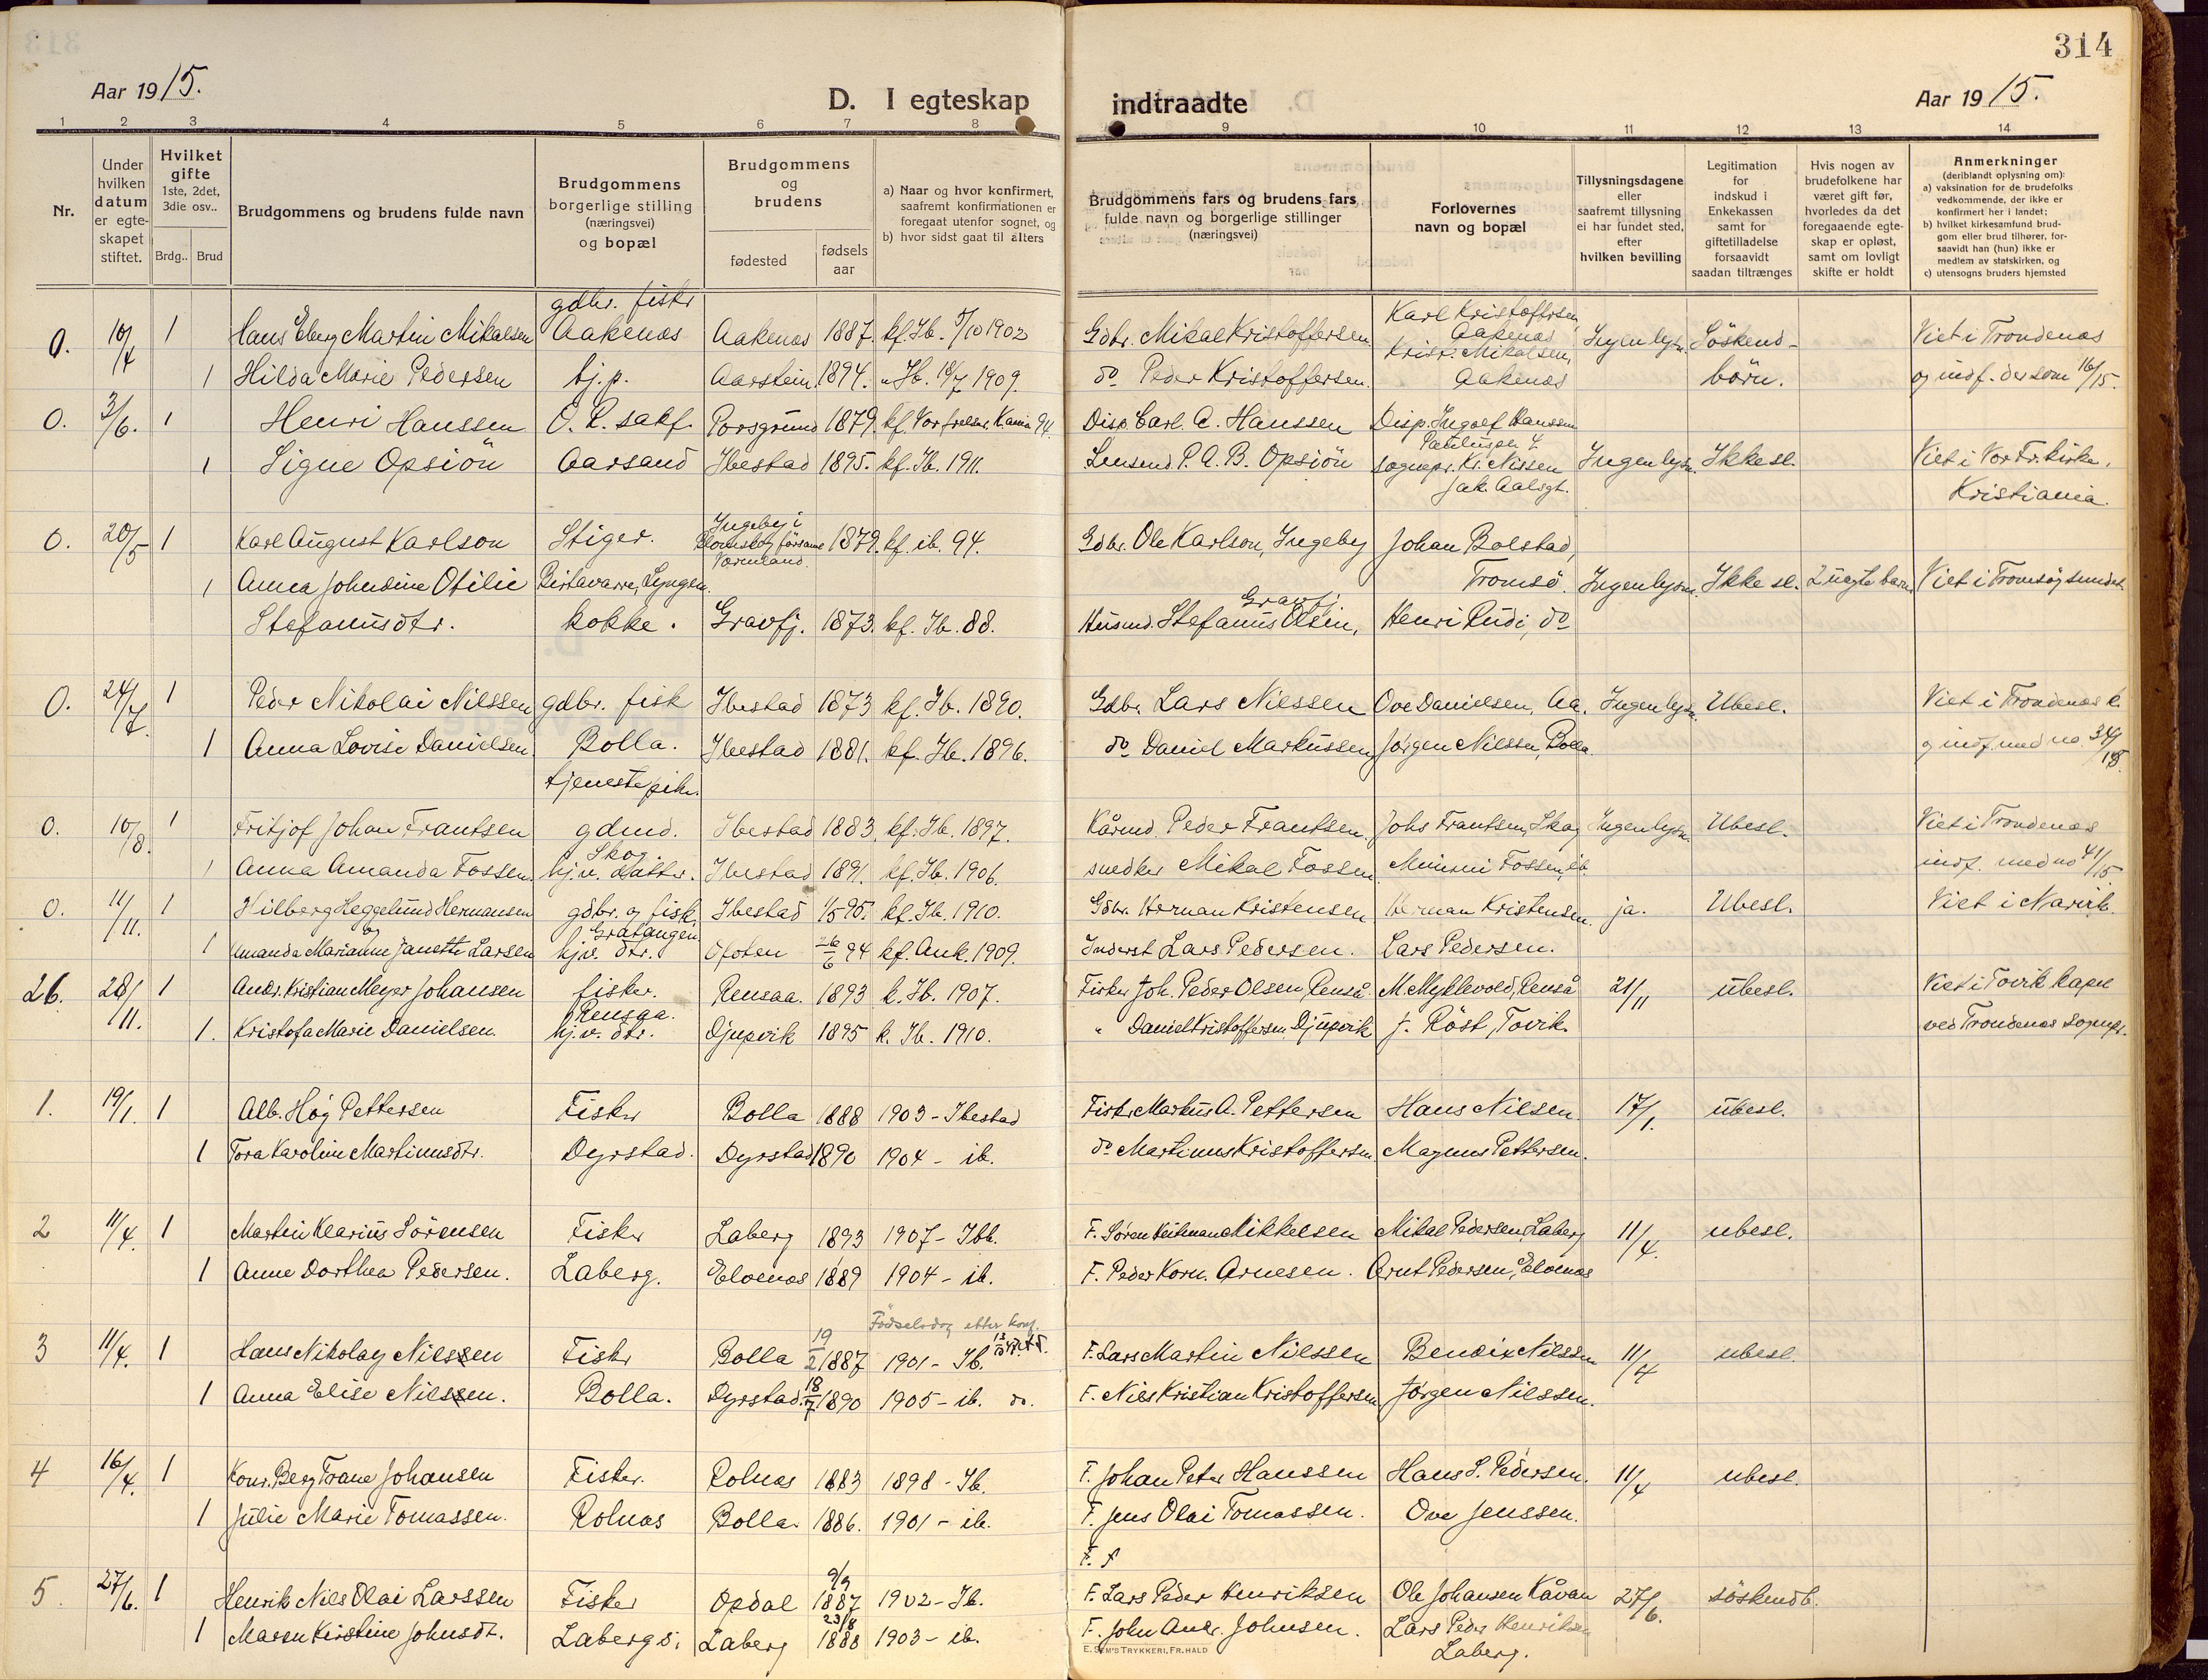 314
Aar 1915.
D. I egteskap
indtraadte
Aar 1915.
1 2 3 4 5 6 7 8 9 10 11 12 13 14
Nr.
Under hvilken datum er egteskapet stiftet.
Hvilket gifte 1ste, 2det, 3die osv..
Brdg.. Brud
Brudgommens og brudens fulde navn
Brudgommens borgerlige stilling (næringsvei) og bopæl
Brudgommens og brudens
fødested
fødsels aar
a) Naar og hvor konfirmert, saafremt konfirmationen er foregaat utenfor sognet, og
b) hvor sidst gaat til alters
Brudgommens fars og brudens fars fulde navn og borgerlige stillinger (næringsvei)
Forlovernes navn og bopæl
Tillysningsdagene eller saafremt tillysning ei har fundet sted, efter hvilken bevilling
Legitimation for indskud i Enkekassen samt for giftetilladelse forsaavidt saadan tiltrænges
Hvis nogen av brudefolkene har været gift før, hvorledes da det foregaaende egteskap er opløst, samt om lovligt skifte er holdt
Anmerkninger (deriblandt oplysning om):
a) vaksination for de brudefolks vedkommende, der ikke er konfirmert her i landet;
b) hvilket kirkesamfund brudgom eller brud tilhører, forsaavidt han (hun) ikke er medlem av statskirken, og
c) utensogns bruders hjemsted
gdbr. fiskr Karl Kristoffersen
0. 10/4 1 Hans Eberg Martin Mikalsen Aakenes Aakenes 1887. kf. Ib. 5/10 1902 Gdbr. Mikal Kristoffersen. Aakenes Ingen lysn. Söskend- Viet i Trondenes
Krist. Mikalsen,
1 Hilda Marie Pedersen hj.p. Aarstein 1894. " Ib. 18/7 1909. do Peder Kristoffersen. Aakenes börn. og indf. der som 16/15.
0. 3/6. 1 Henri Hanssen O. R. sakf. Porsgrund 1879. kf. Vor frelsers K.ania 94. Disp. Carl. C. Hanssen Disp. Ingolf Hanssen
1 Signe Opsiön Aarsand Ibestad 1895. kf. Ib. 1911. Lensmd. P. A. B. Opsiön sognepr. Kr. Nissen Ingen lysn. Ikke sl. Viet i Vor Fr. kirke,
Jak. Aalsgt. Kristiania.
Ingeby i
0. 20/5 1 Karl August Karlson Stiger. 1879. kf. ib. 94. Gdbr. Ole Karlson, Ingeby Johan Bolstad,
Vermland.
1 Anna Johndine Otilie Birtavarre, Lyngen. Tromsö. Ingen lysn. Ikke sl. 2 uegte barn Viet i Tromsöysundet
Gravfj.
Stefanusdtr. kokke. Gravfj. 1873. kf. Ib. 88. Husmd. Stefanus Olsen, Henri Rudi, do
0. 24/7. 1 Peder Nikolai Nilssen gdbr. fisk Ibestad 1873 kf. Ib. 1890. Gdbr. Lars Nilssen Ove Danielsen, Aa. Ingen lysn. Ubesl. Viet i Trondenes k.
1 Anna Lovise Danielsen Bolla. Ibestad 1881. kf. Ib. 1896. do Daniel Markussen Jörgen Nilssen, Bolla. og indf. med no. 34/15.
tjenestepike.
0. 10/8. 1 Fritjof Johan Frantsen gdmd. Ibestad 1883. kf. Ib. 1897. Kårmd. Peder Frantsen. Johs Frantsen, Skog Ingen lysn. Ubesl. Viet i Trondenes
Skog.
1 Anna Amanda Fossen. hj.v. datter. Ibestad 1891. kf. Ib. 1906. snedker Mikal Fossen Mimmi Fossen, ib. indf. med no 41/15
0. 11/11. 1 Hilberg Heggelund Hermansen gdbr. og fisk Ibestad 1/5 95. kf. Ib. 1910. Gdbr. Herman Kristensen Herman Kristensen. ja. Ubesl. Viet i Narvik.
Gratangen
1 Amanda Marianne Janette Larsen hj.v. dtr. Ofoten 26/6 94 kf. Ank. 1909. Inderst Lars Pedersen. Lars Pedersen.
26. 28/11. 1 Andr. Kristian Meyer Johansen fisker. Rensaa. 1893 k. Ib. 1907. Fisker Joh. Peder Olsen, Renså. M. Myklevold, Renså 21/11 ubesl. Viet i Tovik kapel
Rensaa.
1. Kristofa Marie Danielsen. hj.v. dtr. Djupvik 1895 k. Ib. 1910. " Daniel Kristoffersen, Djupvik J. Röst, Tovik. ved Trondenes sognepr.
1. 19/1. 1 Alb. Höj Pettersen Fisker Bolla 1888 1903 - Ibestad Fisker Markus A. Pettersen Hans Nilsen. 17/1. ubesl.
1 Tora Karoline Martinusdtr. Dyrstad. Dyrstad 1890 1904 - ib. do Martinus Kristoffersen Magnus Pettersen.
2 11/4. 1 Martin Klarius Sörensen Fisker Laberg 1893 1907 - Ibb. F. Sören Keihman Mikkelsen Mikal Pedersen, Laberg 11/4. ubesl.
1 Anne Dorthea Pedersen. Laberg. Elvenes 1889 1904 - ib. F. Peder Korn. Arnesen. Arnt Pedersen, Elvenes
Födselsdag etter konf.
3 11/4. 1 Hans Nikolay Nilssen Fisker Bolla 19/2 1887 1901 - Ib. F. Lars Martin Nilssen Bendix Nilssen 11/4 ubesl.
1 Anna Elise Nilssen. Bolla. Dyrstad. 18/7 1890 1905 - ib. do. F. Nils Kristian Kristoffersen Jörgen Nilssen.
4 16/4. 1 Konr. Berg Trane Johansen Fisker. Rolnes 1883 1898 - Ib. F. Johan Peter Hanssen Hans S. Pedersen. 11/4 ubesl.
1 Julie Marie Tomassen. Rolnes Bolla. 1886. 1901 - ib. F. Jens Olai Tomassen. Ove Jenssen.
F. J
9/9
5. 27/6. 1 Henrik Nils Olai Larssen Fisker Opdal 1887 1902 - Ib. F. Lars Peder Henriksen Ole Johansen Kåvan 27/6. söskendb.
23/8
1 Maren Kirstine Johnsdt. Labergs. Laberg 1888 1903 - ib. F. John Andr. Johnsen. Lars Peder Henriksen
Laberg.
E. SEM'S TRYKKERI, FR.HALD